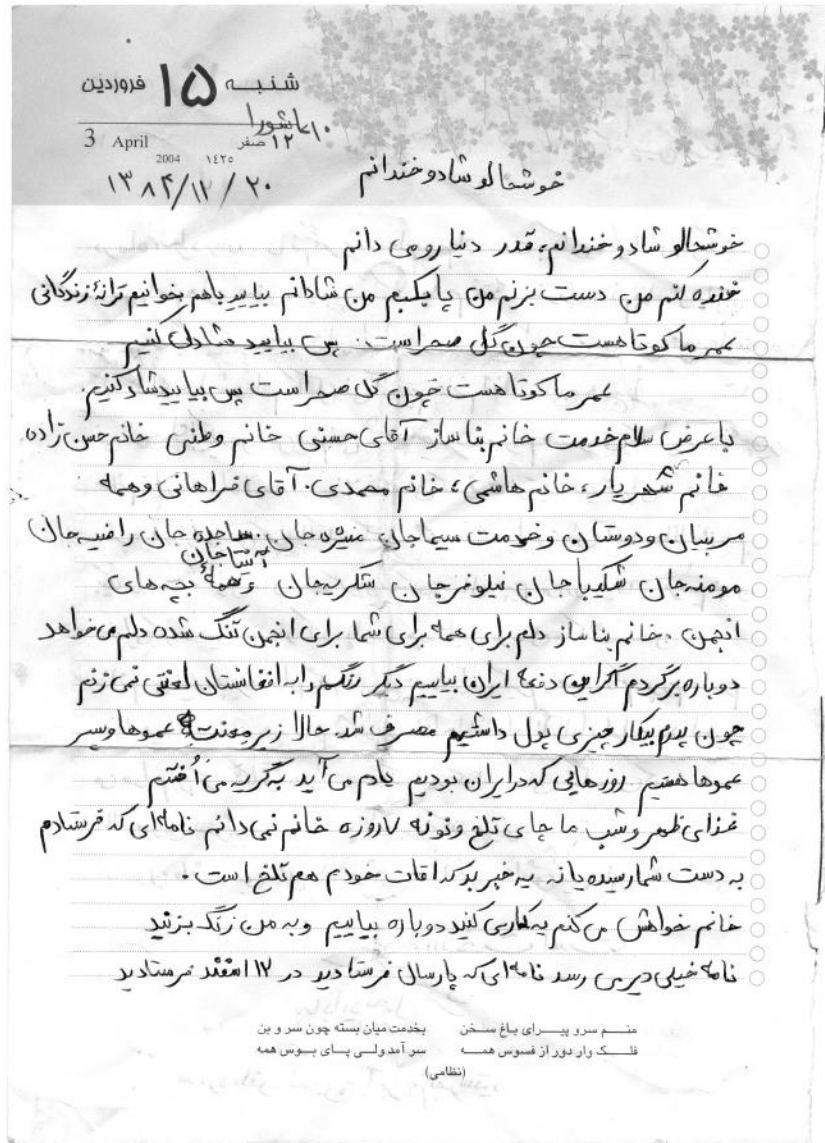 شنبه ۱۵ فروردین
۱۰ عاشورا
۱۲ صفر
3 April
2004 ۱٤۲٥
۱۳۸۴/۱۲/۲۰
خوشحالو شادو خندانم
خوشحالو شادو خندانم، قدر دنیا رو می دانم
خنده کنم من دست بزنم من پا بکوبم من شادانم بیایید باهم بخوانیم ترانهٔ زندگانی
عمر ما کوتاهست چون گل صحراست. پس بیایید شادی کنیم
عمر ما کوتاهست چون گل صحراست پس بیایید شاد کنیم.
با عرض سلام خدمت خانم بناساز آقای حسنی خانم وطنی خانم حسن زاده
خانم شهریار، خانم هاشمی، خانم محمدی. آقای فراهانی و همه
مربیان و دوستان و خدمت سیماجان منیژه جان. ساجده جان راضیه جان
مومنه جان شکیبا جان نیلوفر جان شکریه جان و همهٔ بچه های
انجمن. خانم بناساز دلم برای همه برای شما برای انجمن تنگ شده دلم می خواهد
دوباره برگردم اگر این دفعه ایران بیاییم دیگر رنگ را به افغانستان لعنتی نمی زنم
چون پدرم بیکار چیزی پول داشتیم مصرف شد. حالا زیر عموها و پسر
عموها هستیم روزهایی که در ایران بودیم یادم می آید به گریه می اُفتم
غذای ظهر و شب ما چای تلخ و نونه ۷ روزه خانم نمی دانم نامه ای که فرستادم
به دست شما رسیده یا نه یه خبر بد که اقات خودم هم تلخ است.
خانم خواهش می کنم یه کاری کنید دوباره بیاییم و به من زنگ بزنید
نامه خیلی دیر می رسد نامه ای که پارسال فرستادید در ۱۲ اسفند فرستادید
منم سرو پیرای باغ سخن بخدمت میان بسته چون سر و بن
فلک وار دور از فسوس همه سر آمد ولی پای بوس همه
(نظامی)